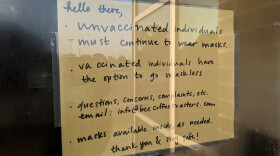 hello there,
• unvaccinated individuals
must continue to wear masks.
• vaccinated individuals have
the option to go maskless
• questions, concerns, complaints, etc.
email: info@
coffeeroasters.com
• masks available inside as needed.
thank you & stay safe!